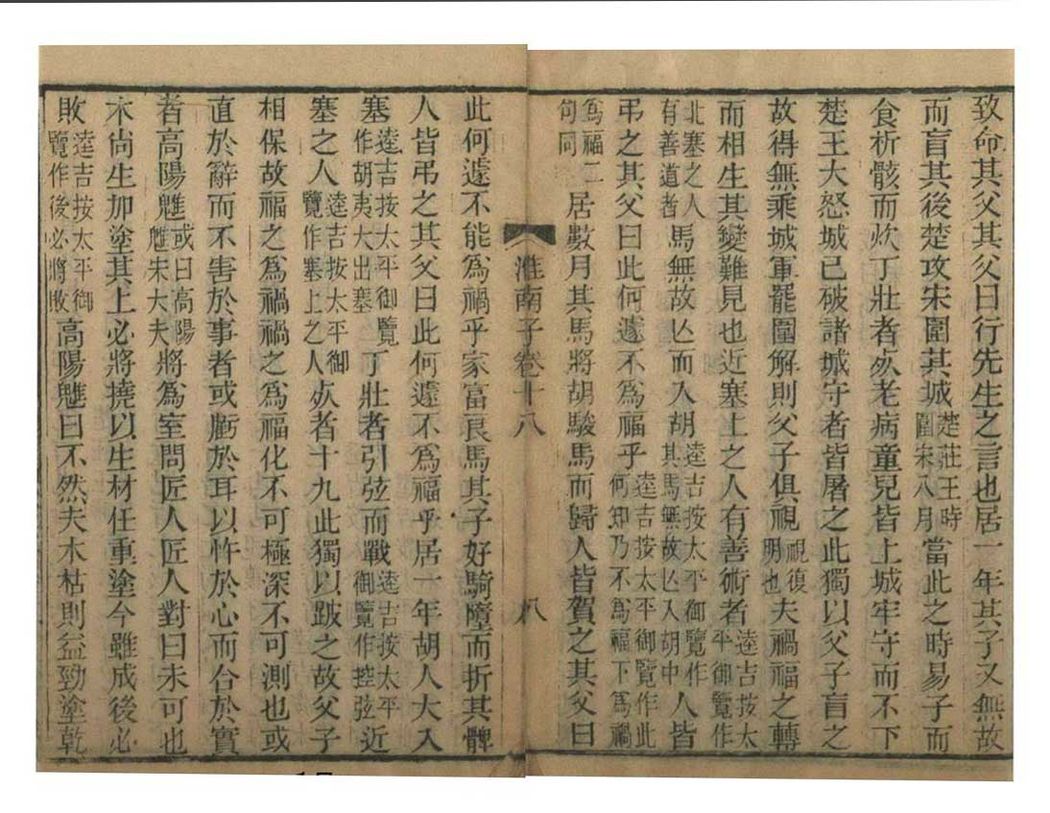 致命其父其父曰行先生之言也居一年其子又無故
而盲其後楚攻宋圍其城楚莊王時圍宋八月當此之時易子而
食析骸而炊丁壯者死老病童兒皆上城牢守而不下
楚王大怒城已破諸城守者皆屠之此獨以父子盲之
故得無乘城軍罷圍解則父子俱視視復明也夫禍福之轉
而相生其變難見也近塞上之人有善術者逵吉按太平御覽作
北塞之人有善道者馬無故亾而入胡逵吉按太平御覽作其馬無故亾入胡中人皆
弔之其父曰此何遽不爲福乎逵吉按太平御覽作此何知乃不爲福下爲禍
爲福二句同居數月其馬將胡駿馬而歸人皆賀之其父曰
淮南子卷十八 八
此何遽不能爲禍乎家富良馬其子好騎墮而折其髀
人皆弔之其父曰此何遽不爲福乎居一年胡人大入
塞逵吉按太平御覽作胡夷大出塞丁壯者引弦而戰逵吉按太平御覽作控弦近
塞之人逵吉按太平御覽作塞上之人死者十九此獨以跛之故父子
相保故福之爲禍禍之爲福化不可極深不可測也或
直於辭而不害於事者或虧於耳以忤於心而合於實
者高陽魋或曰高陽魋宋大夫將爲室問匠人匠人對曰未可也
木尚生加塗其上必將撓以生材任重塗今雖成後必
敗逵吉按太平御覽作後必將敗高陽魋曰不然夫木枯則益勁塗乾